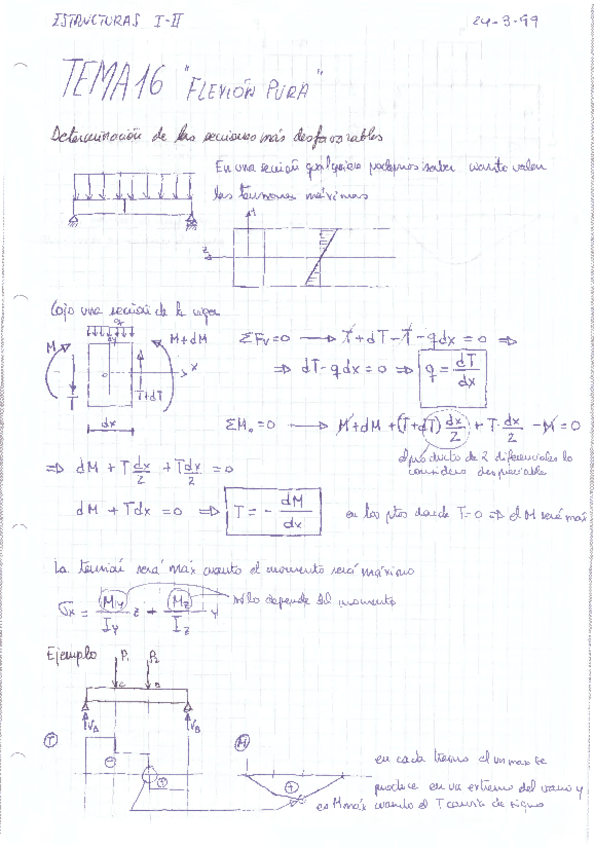 ESTRUCTURAS I-II 24-3-99
TEMA 16 "FLEXIÓN PURA"
Determinación de las secciones más desfavorables
En una sección cualquiera podemos saber cuanto valen
las tensiones máximas
z
Cojo una sección de la viga
q
y
M M+dM
x
T T+dT
dx
ΣFv=0 → T+dT-T-qdx = 0 ⇒
⇒ dT-qdx=0 ⇒ q = dT/dx
ΣM₀=0 → M+dM+(T+dT) dx/2 + T·dx/2 - M = 0
el producto de 2 diferenciales lo
considero despreciable
⇒ dM + T dx/2 + T dx/2 = 0
dM + Tdx = 0 ⇒ T = - dM/dx en los ptos donde T=0 ⇒ el M será max
La tensión será max cuanto el momento será máximo
σx = My/Iy z + Mz/Iz y sólo depende del momento
Ejemplo P₁ P₂
C D
VA VB
T M
en cada tramo el m max se
produce en un extremo del vano y
es M máx cuando el T cambia de signo